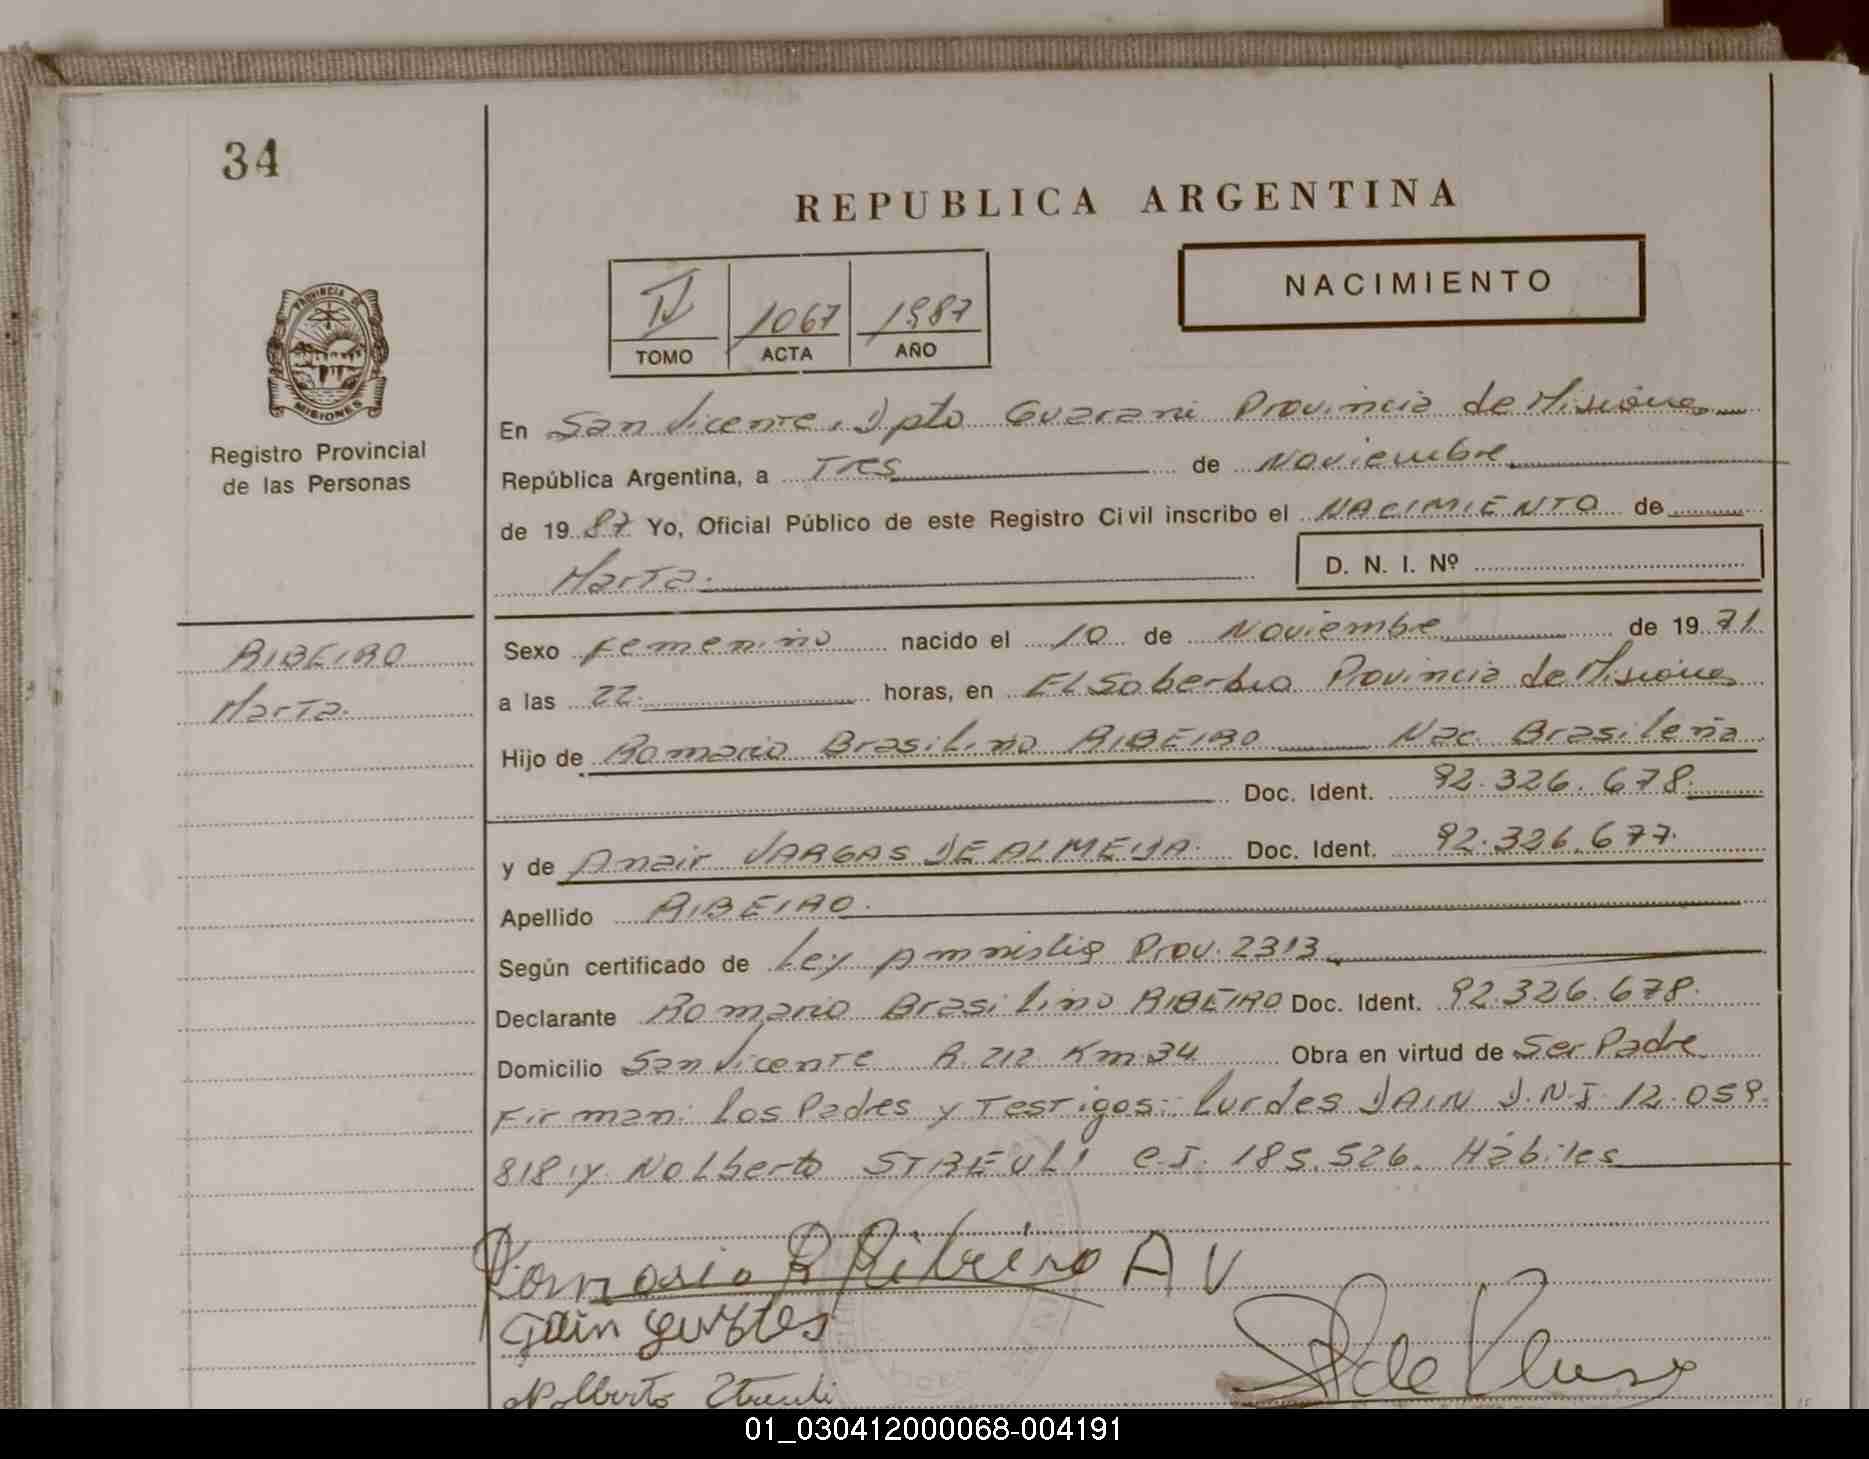 34
REPUBLICA ARGENTINA
NACIMIENTO
IV 1067 1987
TOMO ACTA AÑO
PROVINCIA DE
MISIONES
Registro Provincial
de las Personas
En San Vicente, Dpto Guarani Provincia de Misiones
República Argentina, a Tres de Noviembre
de 19 87 Yo, Oficial Público de este Registro Civil inscribo el NACIMIENTO de
Marta.
D. N. I. Nº
RIBEIRO
Marta.
Sexo Femenino nacido el 10 de Noviembre de 19 71
a las 22. horas, en El Soberbio Provincia de Misiones
Hijo de Romario Brasilino RIBEIRO Nac. Brasileña
Doc. Ident. 92.326.678.
y de Anair VARGAS DE ALMEIDA. Doc. Ident. 92.326.677.
Apellido RIBEIRO.
Según certificado de Ley Amnistia Prov. 2313
Declarante Romario Brasilino RIBEIRO Doc. Ident. 92.326.678.
Domicilio San Vicente R. 212 Km 34 Obra en virtud de Ser Padre
Firman: Los Padres y Testigos: Lurdes DAIN D.N.I. 12.059.
818 y Nolberto STREULI C.I. 185.526. Hábiles
Romario B Ribeiro A V
Nolberto Streuli
01_030412000068-004191